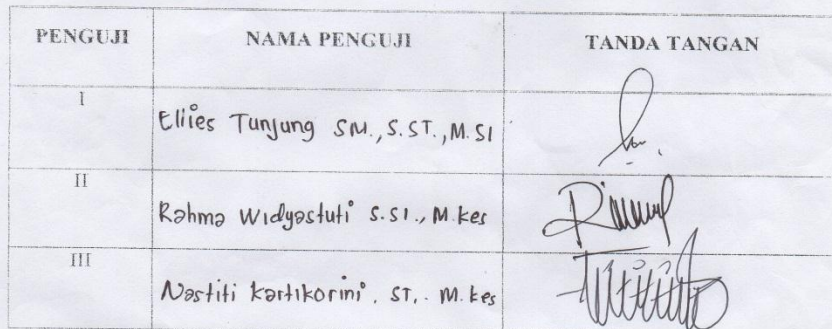 PENGUJI NAMA PENGUJI TANDA TANGAN
I Ellies Tunjung SM., S.ST., M.SI
II Rahma Widyastuti S.SI., M.kes
III Nastiti Kartikorini, ST,. M.kes